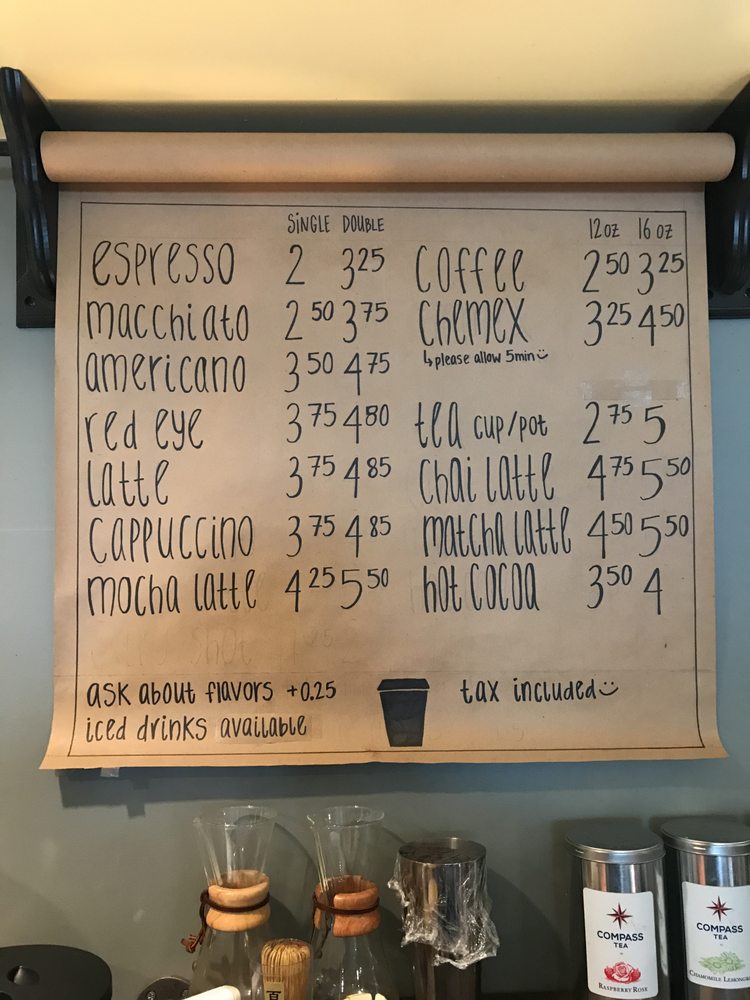 SINGLE DOUBLE
espresso 2 3 25
macchiato 2 50 3 75
americano 3 50 4 75
red eye 3 75 4 80
latte 3 75 4 85
cappuccino 3 75 4 85
mocha latte 4 25 5 50
12oz 16 oz
coffee 2 50 3 25
chemex 3 25 4 50
↳ please allow 5min
tea cup/pot 2 75 5
chai latte 4 75 5 50
matcha latte 4 50 5 50
hot cocoa 3 50 4
ask about flavors +0.25
iced drinks available
tax included
COMPASS
TEA
RASPBERRY ROSE
COMPASS
TEA